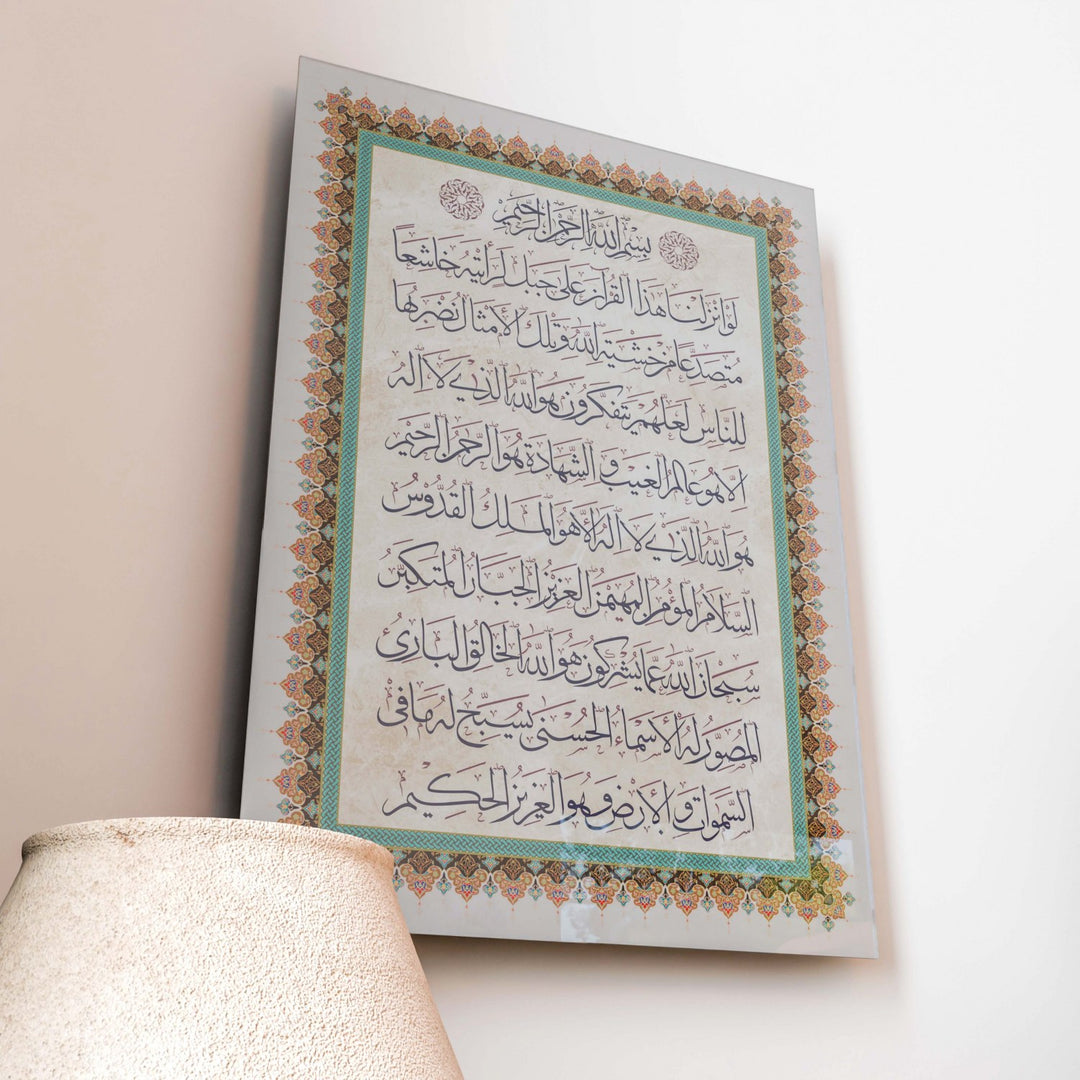 بسم الله الرحمن الرحيم
لو أنزلنا هذا القرآن على جبل لرأيته خاشعاً
متصدعاً من خشية الله وتلك الأمثال نضربها
للناس لعلهم يتفكرون هو الله الذي لا اله
الا هو عالم الغيب و الشهادة هو الرحمن الرحيم
هو الله الذي لا اله الا هو الملك القدوس
السلام المؤمن المهيمن العزيز الجبار المتكبر
سبحان الله عما يشركون هو الله الخالق البارئ
المصور له الأسماء الحسنى يسبح له ما في
السموات و الأرض و هو العزيز الحكيم